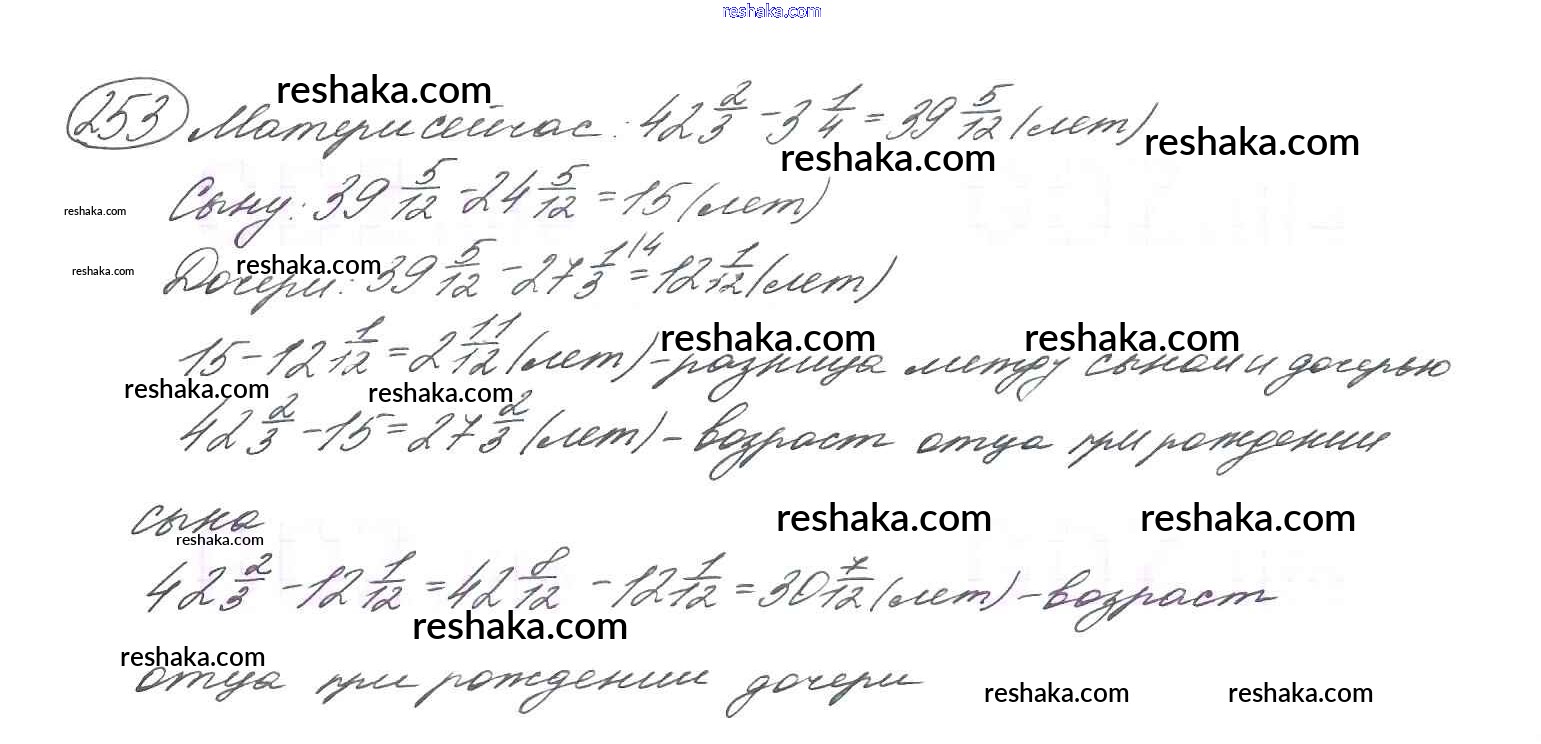 reshaka.com
253 Матери сейчас: 42 2/3 - 3 1/4 = 39 5/12 (лет)
reshaka.com
reshaka.com
reshaka.com
Сыну: 39 5/12 - 24 5/12 = 15 (лет)
reshaka.com
Дочери: 39 5/12 - 27 1/3 \4 = 12 1/12 (лет)
reshaka.com
reshaka.com
15 - 12 1/12 = 2 11/12 (лет) - разница между сыном и дочерью
reshaka.com
reshaka.com
reshaka.com
reshaka.com
42 2/3 - 15 = 27 2/3 (лет) - возраст отца при рождении
сына
reshaka.com
reshaka.com
reshaka.com
42 2/3 - 12 1/12 = 42 8/12 - 12 1/12 = 30 7/12 (лет) - возраст
reshaka.com
reshaka.com
отца при рождении дочери
reshaka.com
reshaka.com